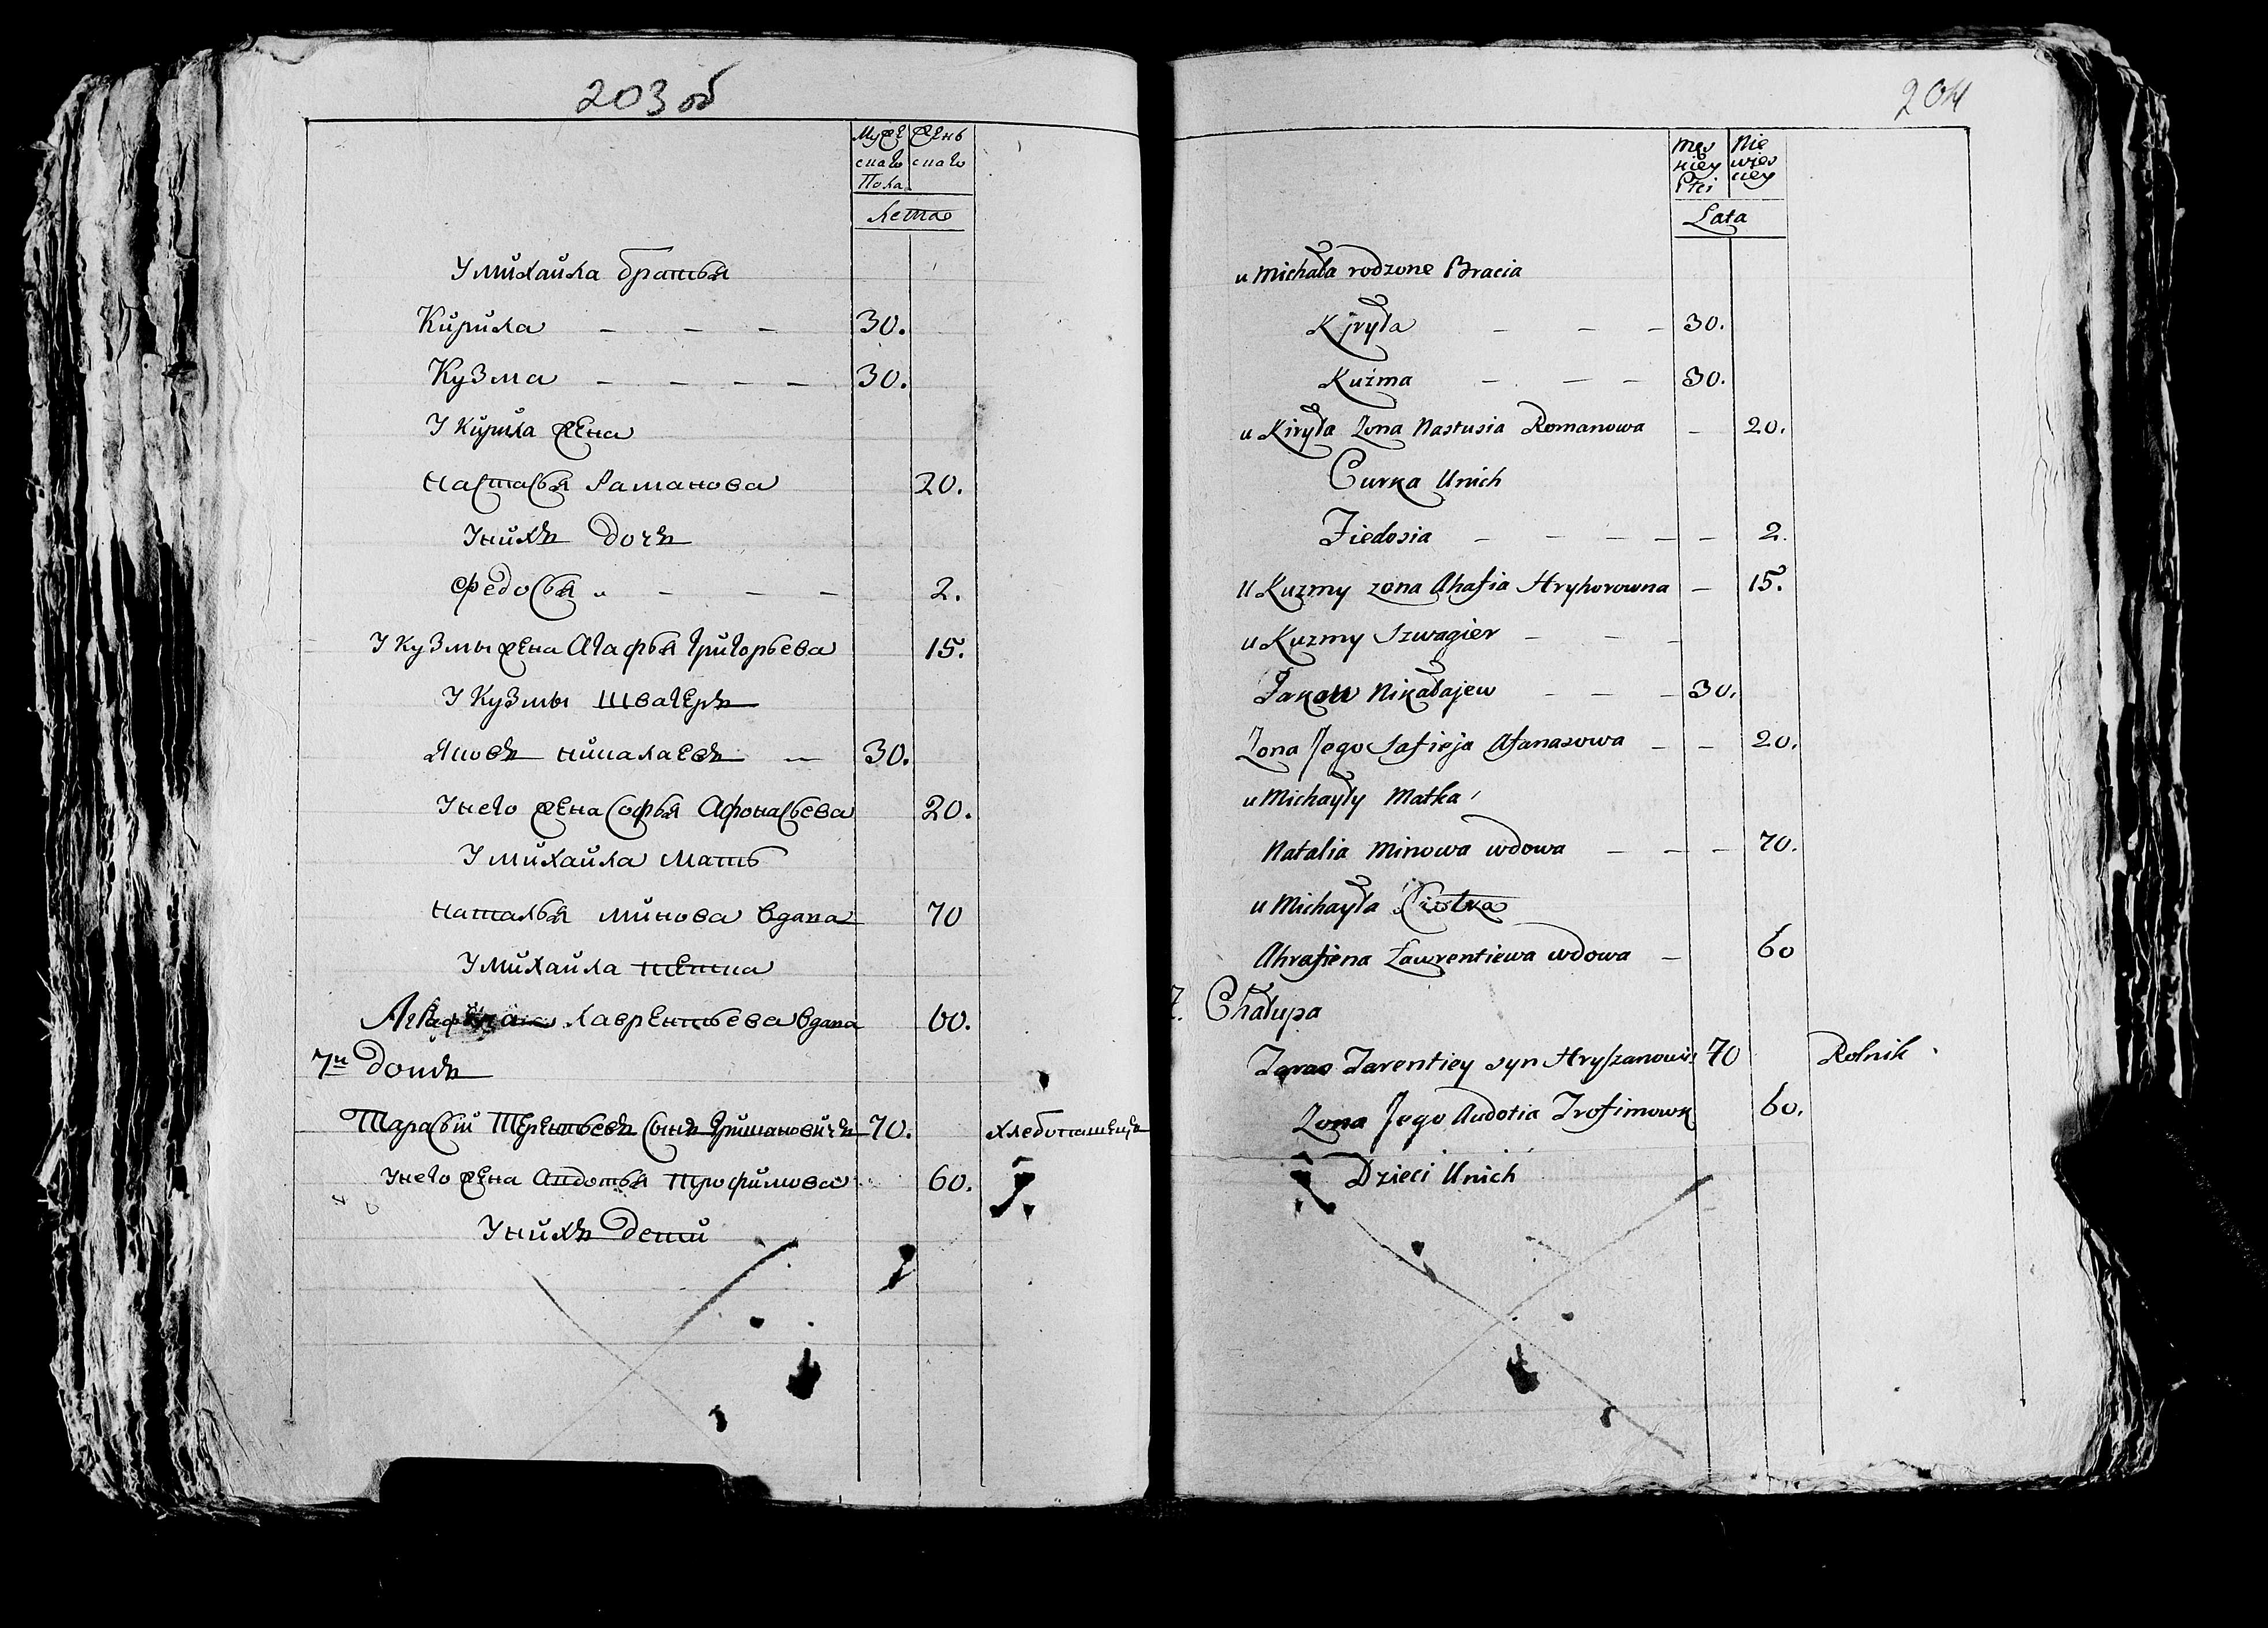 203 об
Мужескаго Пола
Женскаго
Лета
У михайла братья
Кирила — — — 30.
Кузма — — — — 30.
У Кирила жена
настасья Раманова 20.
У нихъ дочъ
Федосья — — — 2.
У Кузмы жена Агафья Григорьева 15.
У Кузмы швагеръ
Яковъ никалаевъ — 30.
У него жена Софья Афонасьева 20.
У михайла мать
наталья минова вдава 70
У михайла тетка
Лаврентьева вдава 60.
7й Домъ
Тарасий Терентьевъ сынъ Гришановичъ 70. хлебопашецъ
У него жена Авдотья Трофимова 60.
У нихъ дети
204
Męskiey Płci
Niewiesciey
Lata
u Michała rodzone Bracia
Kjryła — — — 30.
Kuźma — — — 30.
u Kiryła Zona Nastusia Romanowa — 20.
Curka Unich
Fiedosia — — — — — 2.
U Kuzmy zona Ahafia Hryhorowna — 15.
u Kuzmy Szwagier — — —
Jakow Nikałajew — — — 30.
Zona Jego Safieja Afanasowa — — 20.
u Michayły Matka
Natalia Minowa wdowa — — — 70.
u Michayła Ciotka
Ahrafiena Ławrentiewa wdowa — 60
7. Chałupa
Taras Tarentiey syn Hryszanowi 70 Rolnik
Zona Jego Audotia Trofimowk 60.
Dzieci Unich